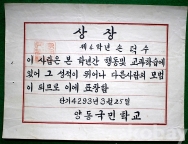 상장
제4학년 손덕수
이 사람은 본 학년간 행동및 교과학습에
있어 그 성적이 뛰어나 다른사람의 모범
이 되므로 이에 표창함
단기4293년3월25일
양동국민학교